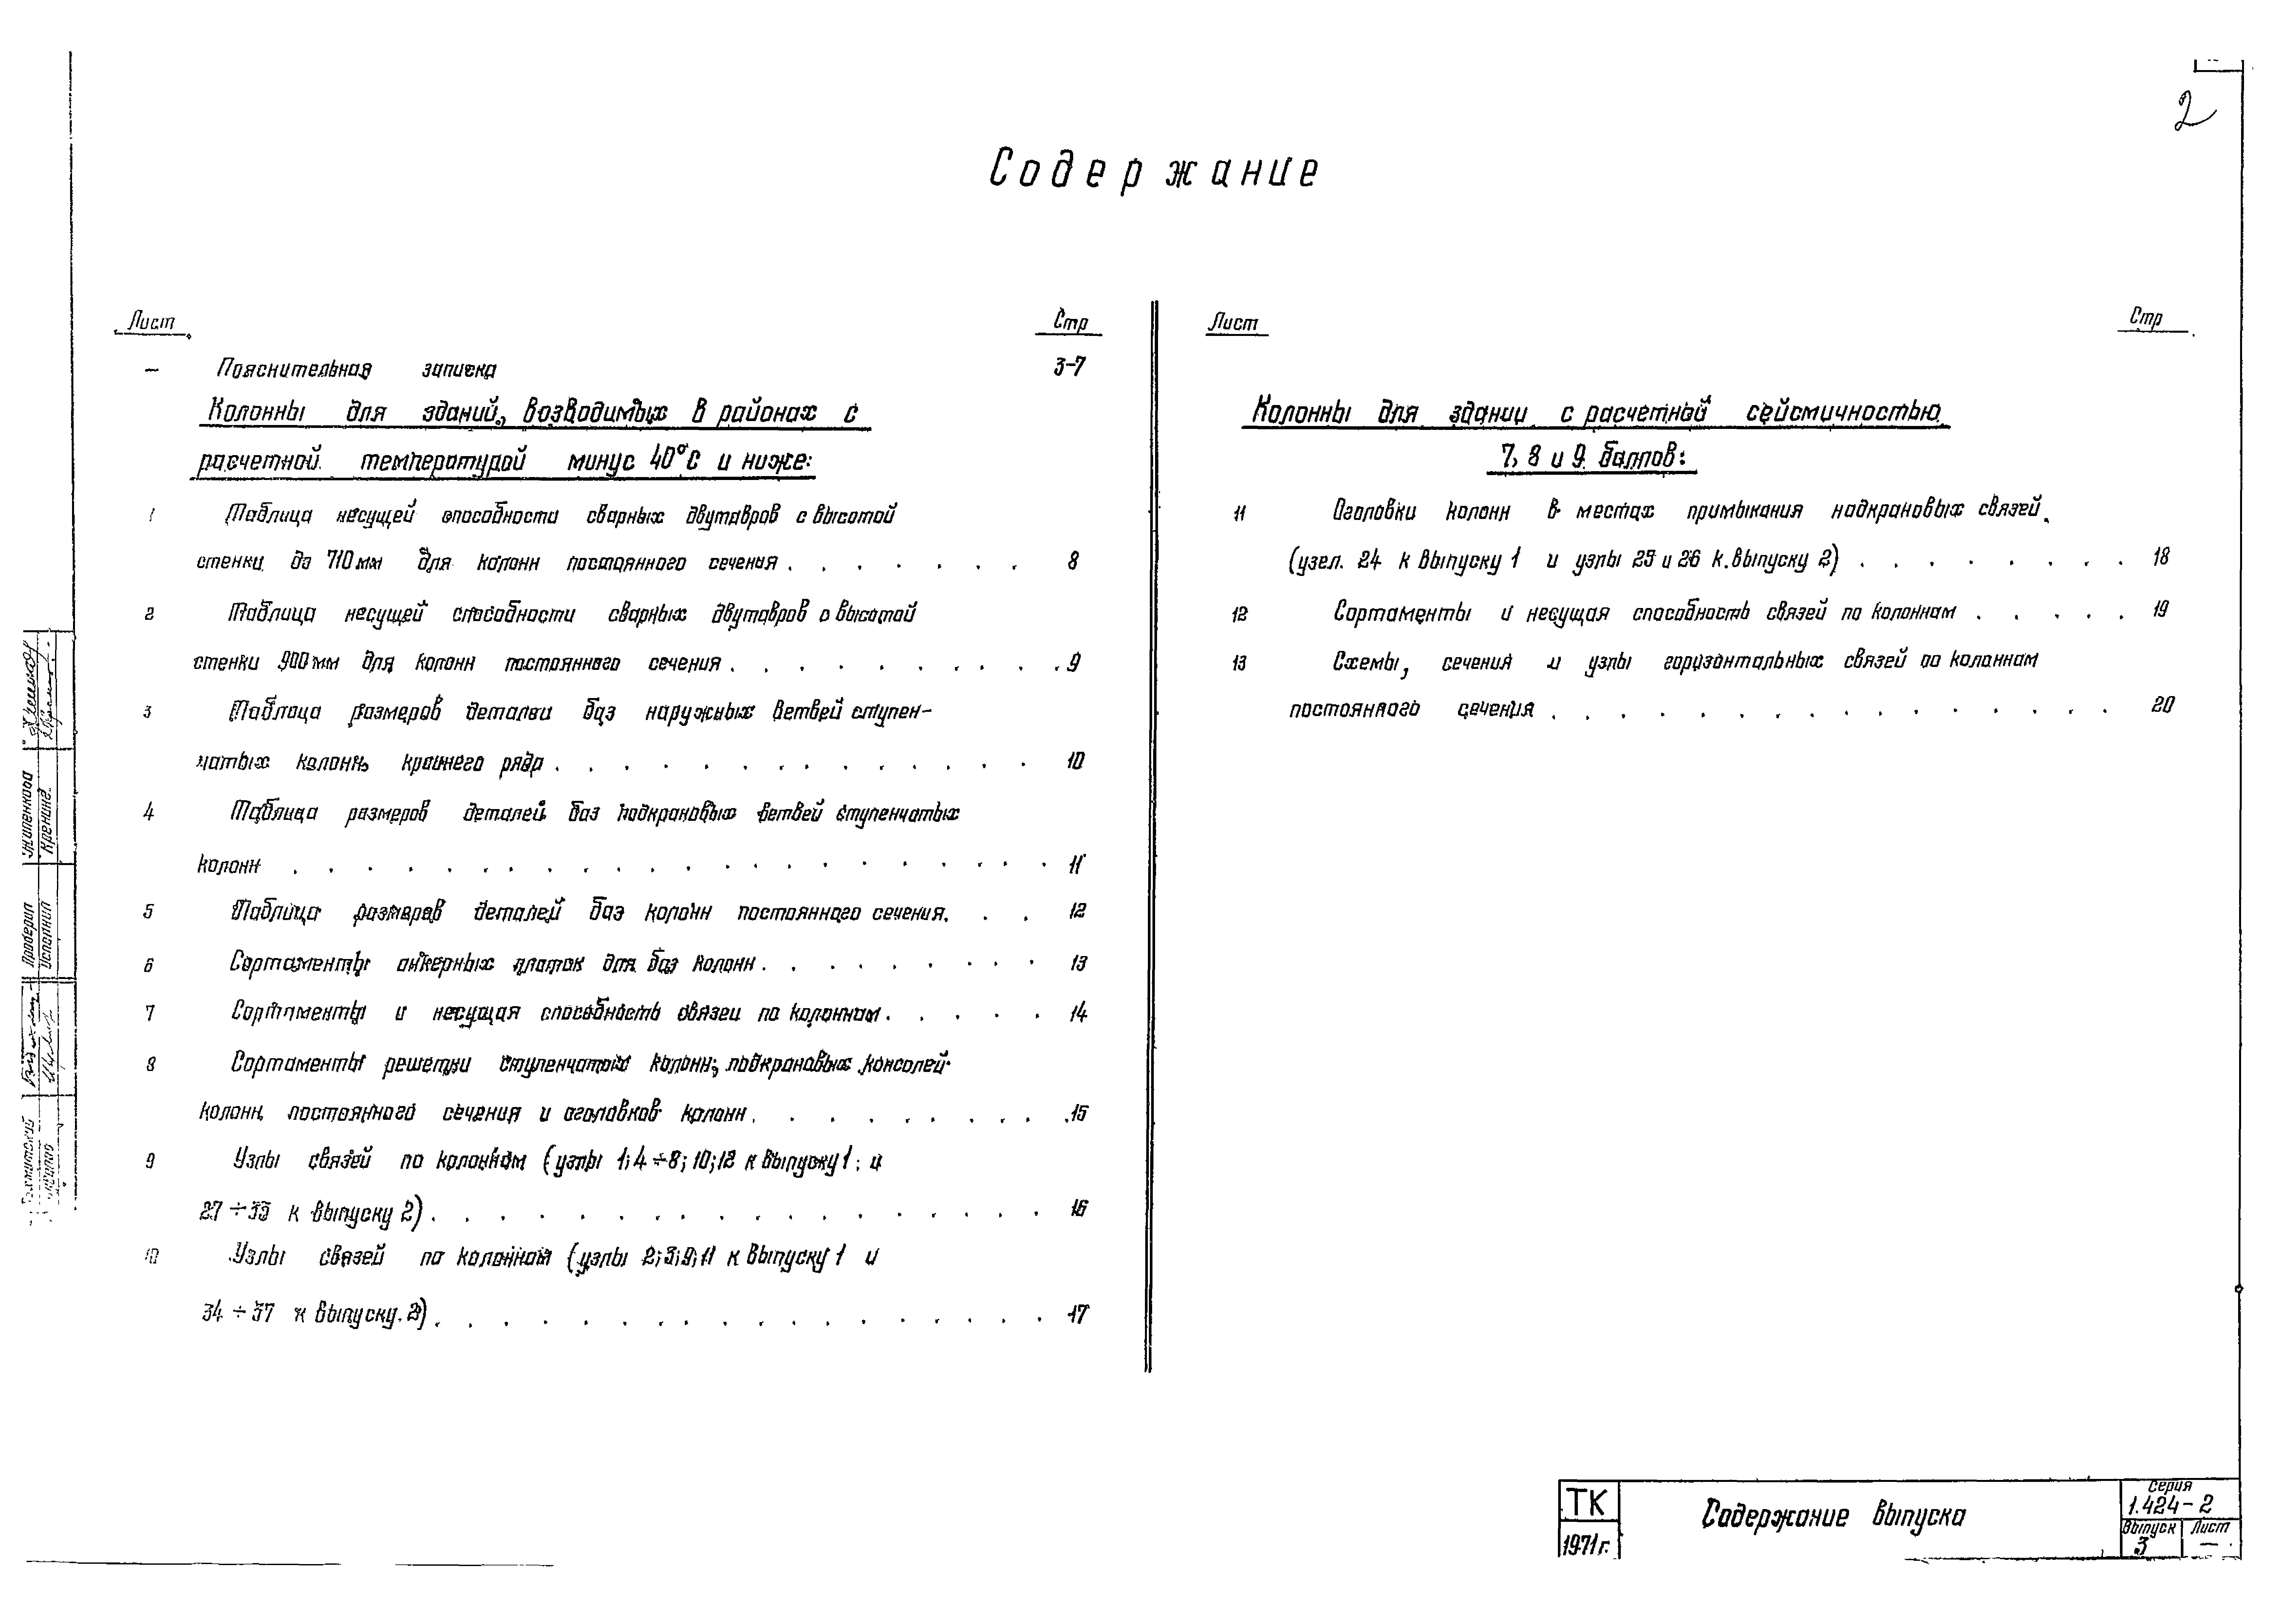 2
Содержание
Лист Стр
— Пояснительная записка 3-7
Колонны для зданий, возводимых в районах с
расчетной температурой минус 40°С и ниже:
1 Таблица несущей способности сварных двутавров с высотой
стенки до 710 мм для колонн постоянного сечения . . . . . . . 8
2 Таблица несущей способности сварных двутавров с высотой
стенки 900 мм для колонн постоянного сечения . . . . . . . . . 9
3 Таблица размеров детали баз наружных ветвей ступен-
чатых колонн крайнего ряда . . . . . . . . . . . . . 10
4 Таблица размеров деталей баз подкрановых ветвей ступенчатых
колонн . . . . . . . . . . . . . . . . . . . . 11
5 Таблица размеров деталей баз колонн постоянного сечения . . . 12
6 Сортаменты анкерных плиток для баз колонн . . . . . . . . 13
7 Сортаменты и несущая способность связей по колоннам . . . . . 14
8 Сортаменты решетки ступенчатых колонн, подкрановых консолей
колонн постоянного сечения и оголовков колонн . . . . . . . . 15
9 Узлы связей по колоннам (узлы 1; 4÷8; 10; 12 к выпуску 1; и
27÷33 к выпуску 2) . . . . . . . . . . . . . . . . . 16
10 Узлы связей по колоннам (узлы 2; 3; 9; 11 к выпуску 1 и
34÷37 к выпуску 2) . . . . . . . . . . . . . . . . 17
Лист Стр
Колонны для здании с расчетной сейсмичностью
7, 8 и 9 баллов:
11 Оголовки колонн в местах примыкания надкрановых связей
(узел 24 к выпуску 1 и узлы 25 и 26 к выпуску 2) . . . . . . . . 18
12 Сортаменты и несущая способность связей по колоннам . . . . . 19
13 Схемы, сечения и узлы горизонтальных связей по колоннам
постоянного сечения . . . . . . . . . . . . . . . 20
Проверил
Исполнил
ТК
1971г.
Содержание выпуска
Серия
1.424-2
Выпуск Лист
3 —